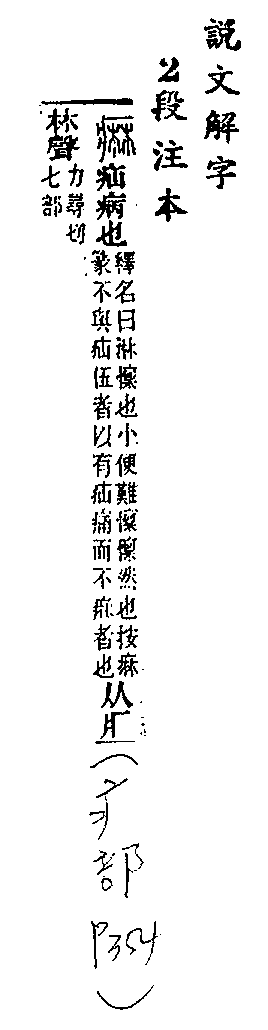 說文解字
2段注本
痳疝病也釋名曰淋懔也小便難懔懔然也按痳
篆不與疝伍者以有疝痛而不痳者也从疒
林聲力尋切
七部
(疒部P354)